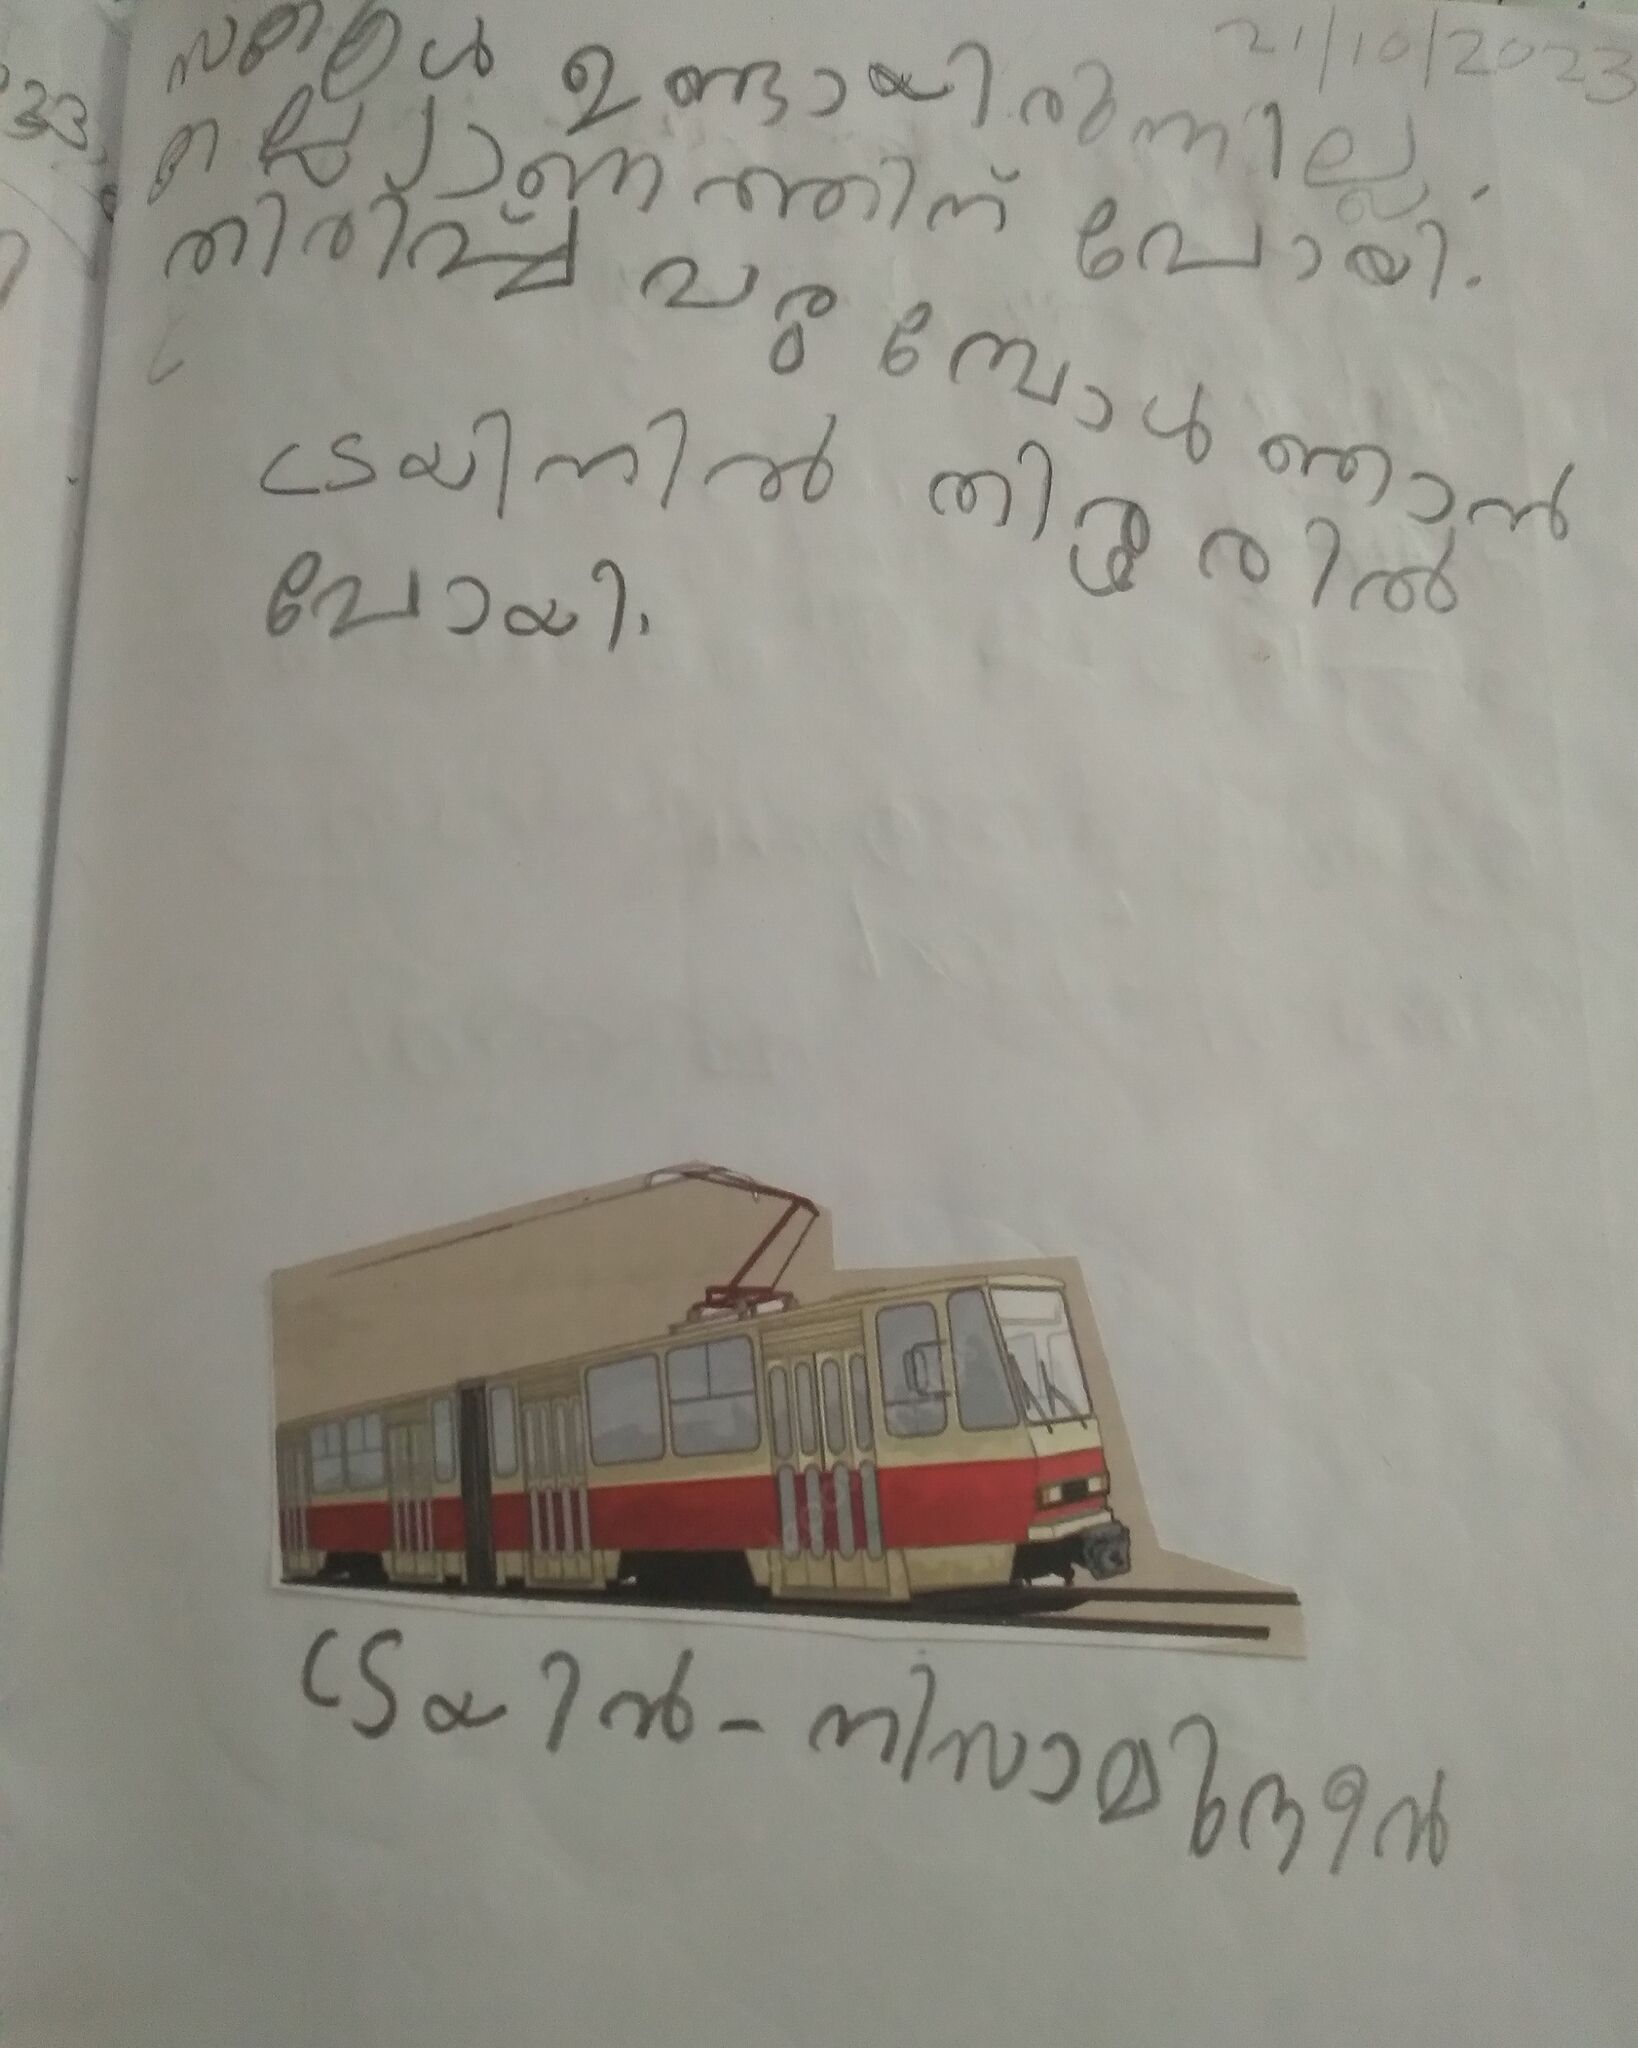 21/10/2023
സ്കൂൾ ഉണ്ടായിരുന്നില്ല.
കല്യാണത്തിന് പോയി.
തിരിച്ച് വരുമ്പോൾ ഞാൻ
ട്രയിനിൽ തിരൂരിൽ
പോയി.
ട്രയിൻ - നിസാമുദീൻ